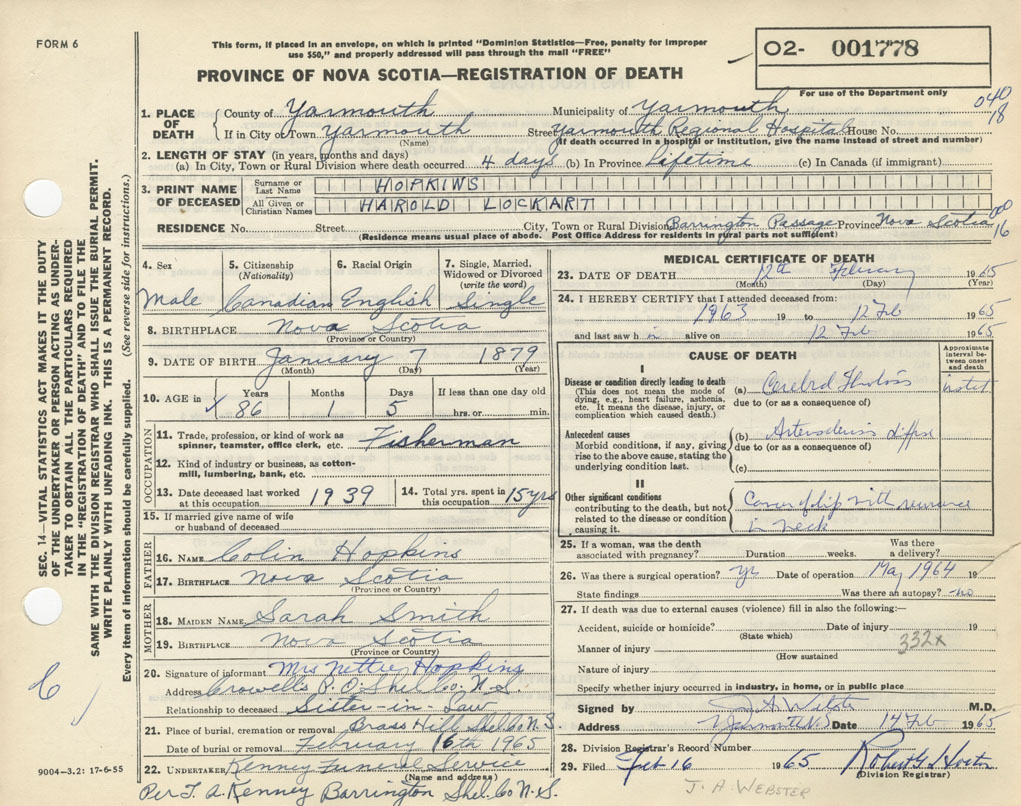 FORM 6
This form, if placed in an envelope, on which is printed "Dominion Statistics—Free, penalty for improper
use $50," and properly addressed will pass through the mail "FREE"
PROVINCE OF NOVA SCOTIA—REGISTRATION OF DEATH
02- 001778
For use of the Department only
040
18
1. PLACE OF DEATH
County of Yarmouth Municipality of Yarmouth
If in City or Town Yarmouth Street Yarmouth Regional Hospital House No.
(Name) (If death occurred in a hospital or institution, give the name instead of street and number)
2. LENGTH OF STAY (in years, months and days)
(a) In City, Town or Rural Division where death occurred 4 days (b) In Province lifetime (c) In Canada (if immigrant)
3. PRINT NAME OF DECEASED
Surname or Last Name HOPKINS
All Given or Christian Names HAROLD LOCKART
RESIDENCE No. Street City, Town or Rural Division Barrington Passage Province Nova Scotia
(Residence means usual place of abode. Post Office Address for residents in rural parts not sufficient)
000
16
4. Sex Male
5. Citizenship (Nationality) Canadian
6. Racial Origin English
7. Single, Married, Widowed or Divorced (write the word) Single
8. BIRTHPLACE Nova Scotia
(Province or Country)
9. DATE OF BIRTH January 7 1879
(Month) (Day) (Year)
10. AGE in Years 86 Months 1 Days 5 If less than one day old hrs. or min.
OCCUPATION
11. Trade, profession, or kind of work as spinner, teamster, office clerk, etc. Fisherman
12. Kind of industry or business, as cotton-mill, lumbering, bank, etc.
13. Date deceased last worked at this occupation 1939
14. Total yrs. spent in this occupation 15 yrs
15. If married give name of wife or husband of deceased
FATHER
16. NAME Colin Hopkins
17. BIRTHPLACE Nova Scotia
(Province or Country)
MOTHER
18. MAIDEN NAME Sarah Smith
19. BIRTHPLACE Nova Scotia
(Province or Country)
20. Signature of informant Mrs Nettie Hopkins
Address Crowells P.O. Shel. Co. N.S.
Relationship to deceased Sister-in-Law
21. Place of burial, cremation or removal Brass Hill Shel Co N.S.
Date of burial or removal February 16th 1965
22. UNDERTAKER Kenney Funeral Service
(Name and address)
Per T. A. Kenney Barrington Shel. Co N.S.
9004-3.2: 17-6-55
MEDICAL CERTIFICATE OF DEATH
23. DATE OF DEATH 12th February 1965
(Month) (Day) (Year)
24. I HEREBY CERTIFY that I attended deceased from:
1963 19 to 12 Feb 1965
and last saw h im alive on 12 Feb 1965
CAUSE OF DEATH
Approximate interval between onset and death
I
Disease or condition directly leading to death
(This does not mean the mode of dying, e.g., heart failure, asthenia, etc. It means the disease, injury, or complication which caused death.)
(a) Cerebral
due to (or as a consequence of)
Antecedent causes
Morbid conditions, if any, giving rise to the above cause, stating the underlying condition last.
(b)
due to (or as a consequence of)
(c)
II
Other significant conditions
contributing to the death, but not related to the disease or condition causing it.
Cancer of lip with
in neck
25. If a woman, was the death associated with pregnancy? Duration weeks. Was there a delivery?
26. Was there a surgical operation? yes Date of operation May 1964 19
State findings Was there an autopsy? no
27. If death was due to external causes (violence) fill in also the following:—
Accident, suicide or homicide? Date of injury 19
(State which)
Manner of injury 332x
(How sustained
Nature of injury
Specify whether injury occurred in industry, in home, or in public place
Signed by J A Webster M.D.
Address Yarmouth NS Date 14 Feb 1965
28. Division Registrar's Record Number
29. Filed Feb 16 1965
(Division Registrar)
J. A. WEBSTER
SEC. 14—VITAL STATISTICS ACT MAKES IT THE DUTY
OF THE UNDERTAKER OR PERSON ACTING AS UNDER-
TAKER TO OBTAIN ALL THE PARTICULARS REQUIRED
IN THE "REGISTRATION OF DEATH" AND TO FILE THE
SAME WITH THE DIVISION REGISTRAR WHO SHALL ISSUE THE BURIAL PERMIT.
WRITE PLAINLY WITH UNFADING INK. THIS IS A PERMANENT RECORD.
Every item of information should be carefully supplied. (See reverse side for instructions.)